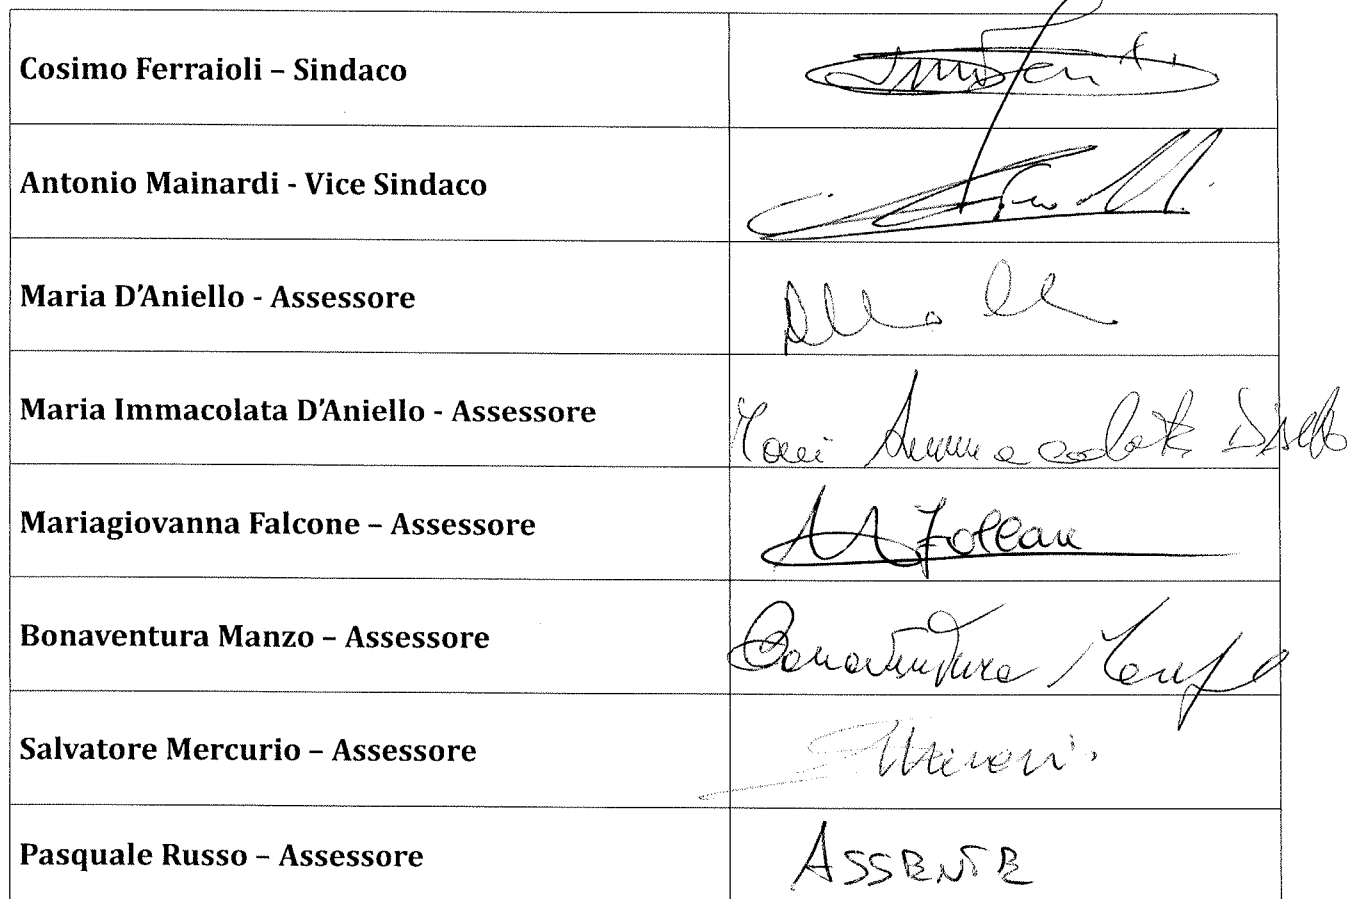 Cosimo Ferraioli – Sindaco
Antonio Mainardi - Vice Sindaco
Maria D'Aniello - Assessore
Maria Immacolata D'Aniello - Assessore
Mariagiovanna Falcone – Assessore
Bonaventura Manzo – Assessore
Bonaventura Manzo
Salvatore Mercurio – Assessore
Pasquale Russo – Assessore
ASSENTE